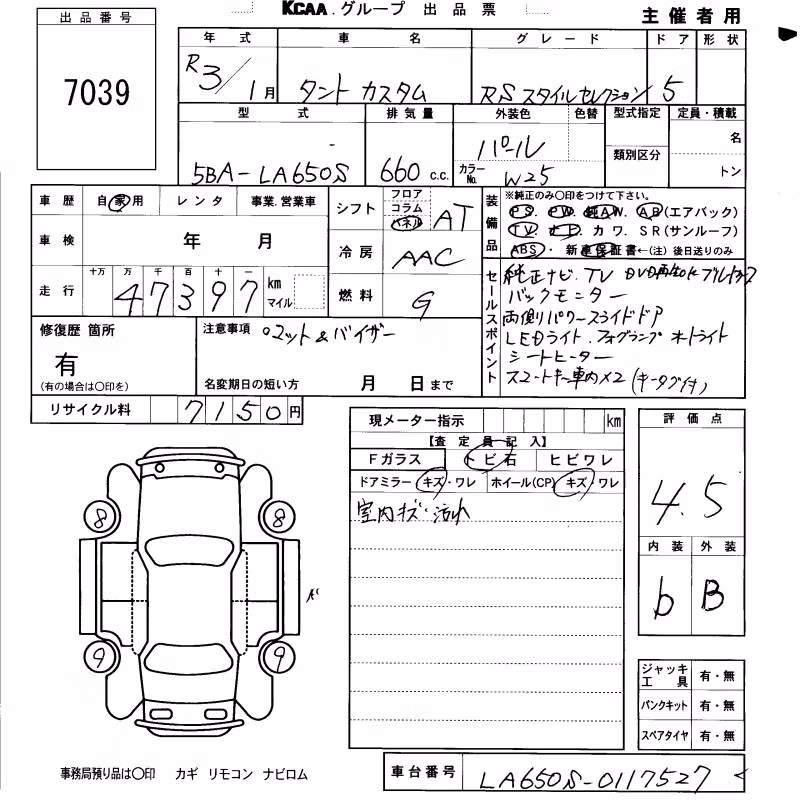 KCAA.グループ 出品票
主催者用
出品番号
7039
年式 車名 グレード ドア 形状
R3/1月 タント カスタム RSスタイルセレクション 5
型式 排気量 外装色 色替 型式指定 定員・積載
5BA-LA650S 660 c.c. パール 類別区分 名
カラーNo. W25 トン
車歴 自家用 レンタ 事業.営業車
車検 年 月
走行 十万 万 千 百 十 一
47397 km マイル
シフト フロア コラム パネル AT
冷房 AAC
燃料 G
装備品
※純正のみ〇印をつけて下さい。
PS. PW. 純AW. AB(エアバック)
TV. ナビ. カワ. SR(サンルーフ)
ABS・ 新車保証書←(注)後日送りのみ
セールスポイント
純正ナビ.TV DVD再生OK
バックモニター
両側パワースライドドア
LEDライト.フォグランプ オートライト
シートヒーター
スマートキー車内×2 (キータグ付)
修復歴 箇所
有
(有の場合は〇印を)
注意事項 マット&バイザー
名変期日の短い方 月 日まで
リサイクル料 7150円
現メーター指示 km
【査定員記入】
Fガラス トビ石 ヒビワレ
ドアミラー キズ・ワレ ホイール(CP) キズ・ワレ
室内キズ・汚れ
評価点
4.5
内装 外装
b B
8 8
9 9
ジャッキ工具 有・無
パンクキット 有・無
スペアタイヤ 有・無
事務局預り品は〇印 カギ リモコン ナビロム
車台番号 LA650S-0117527